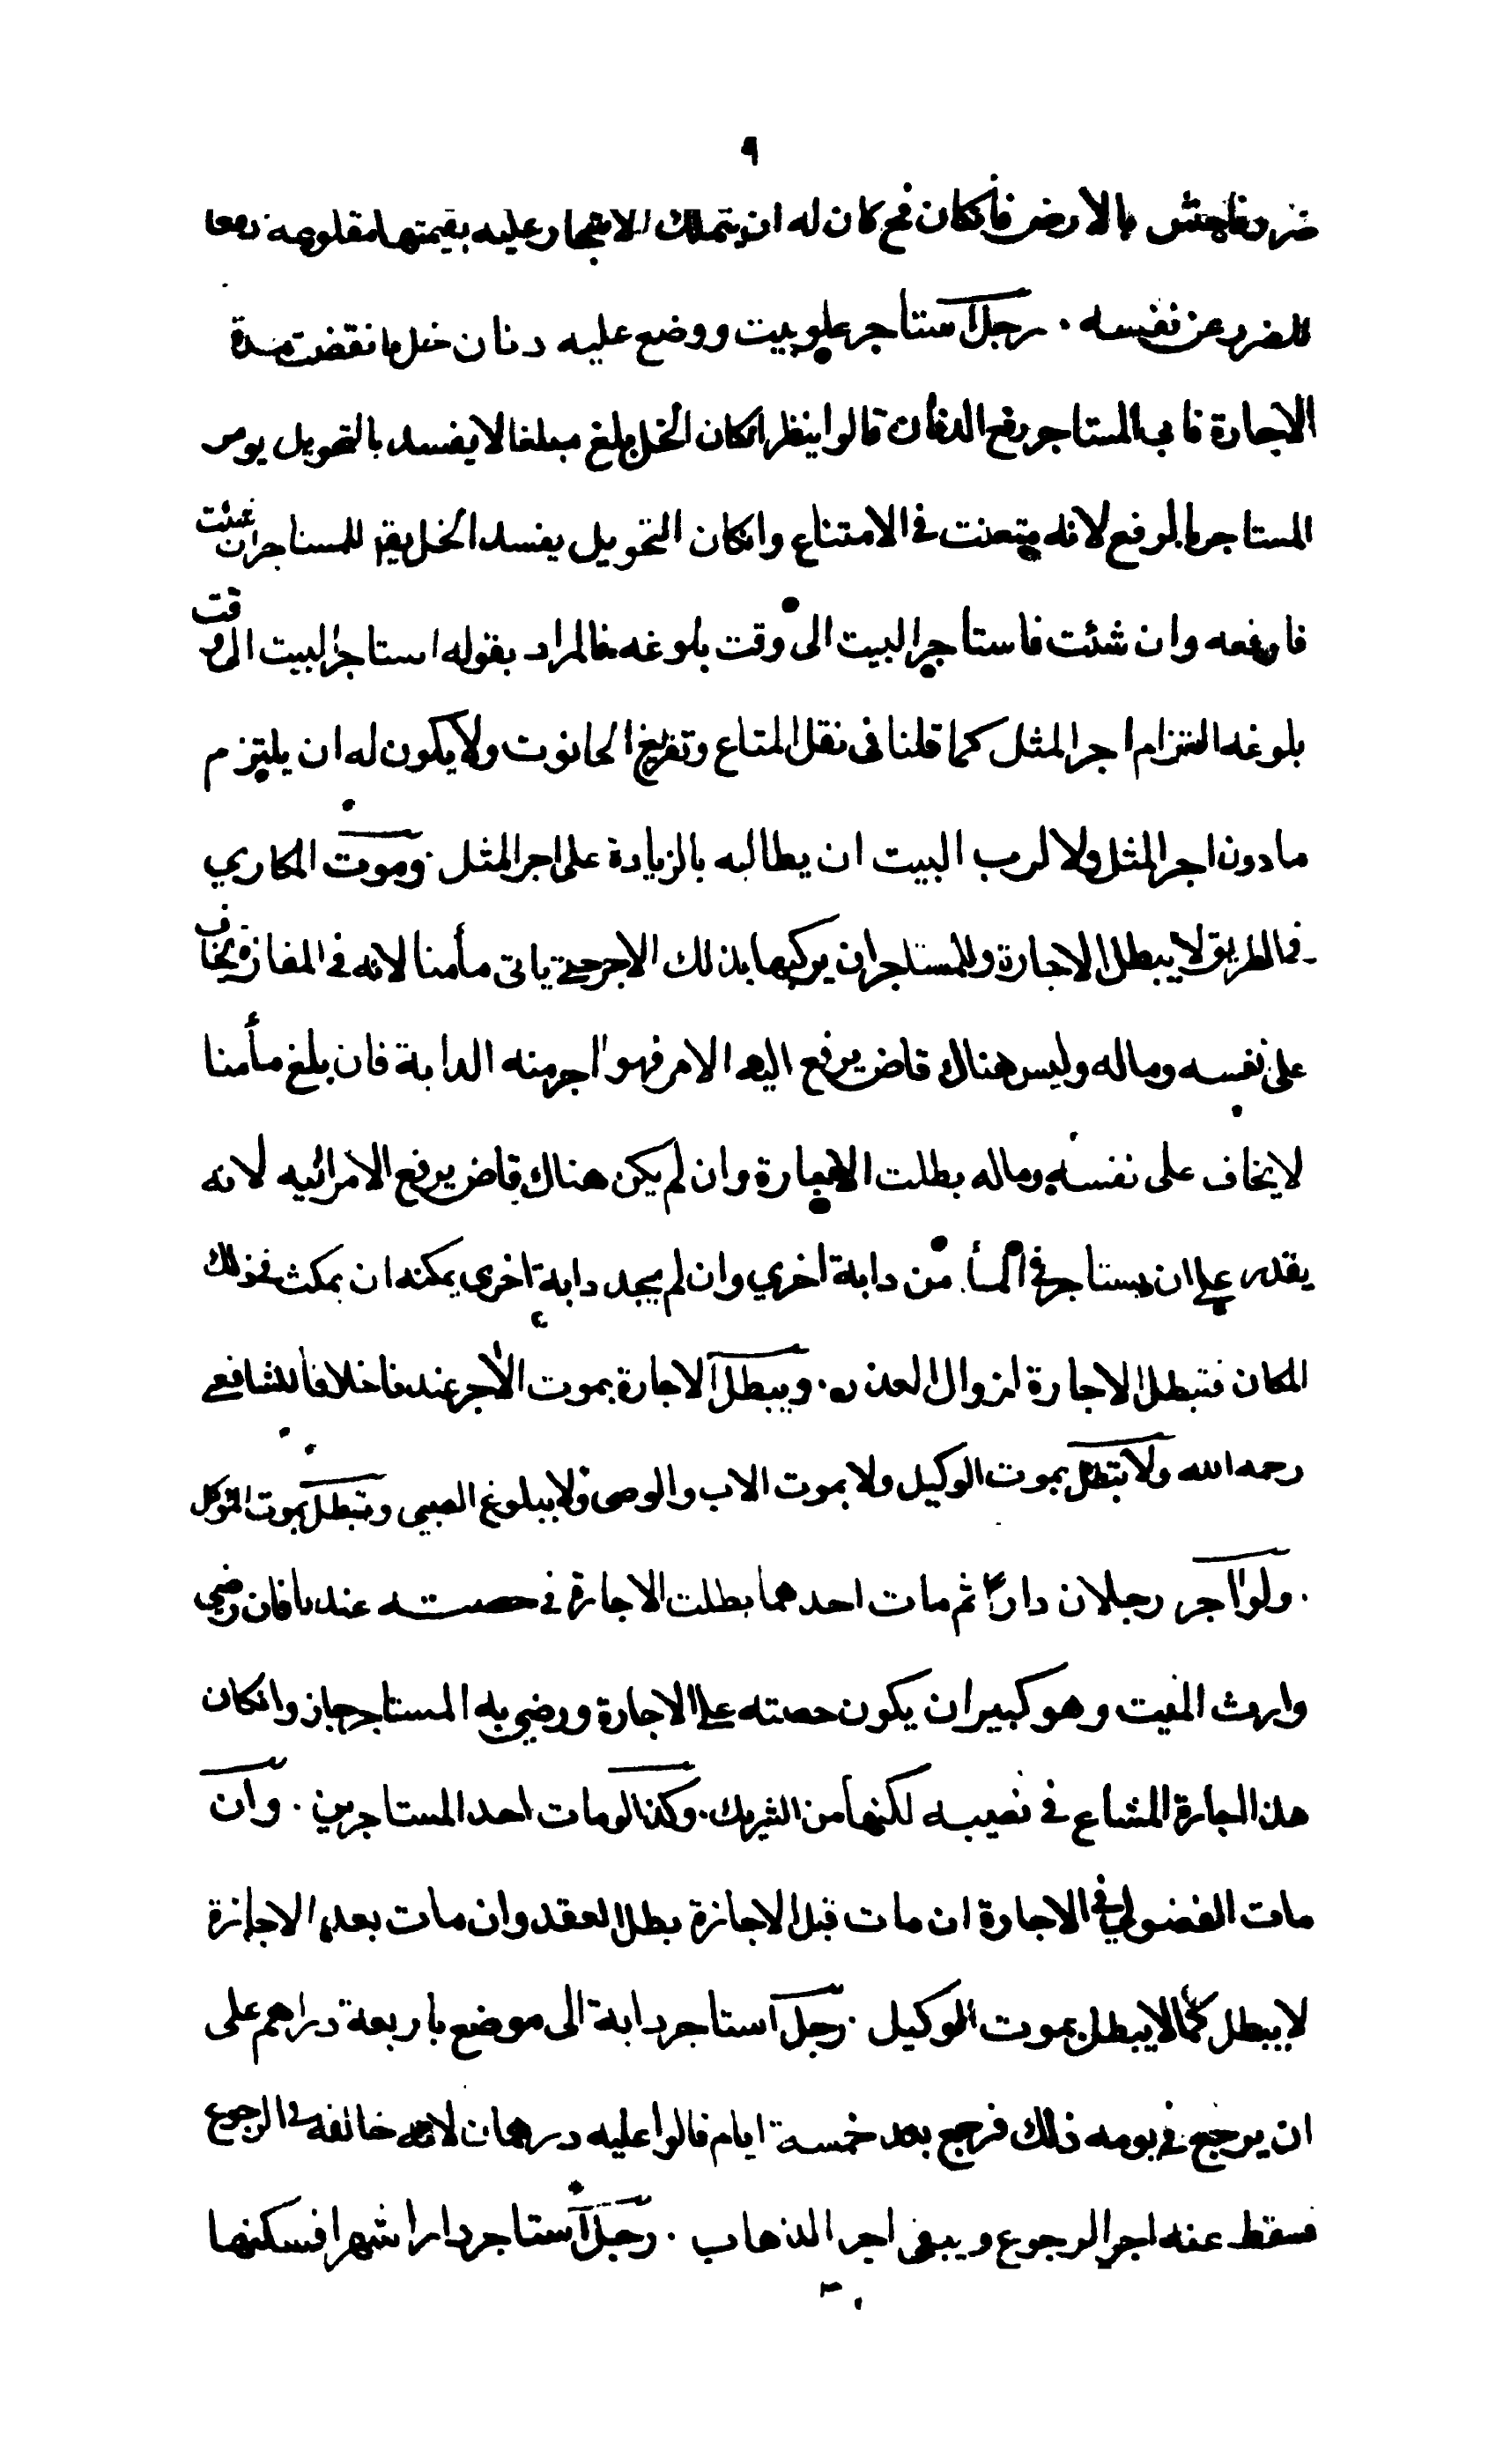 ٩
ضرر فاحش بالارض فانكان فح كان له ان يتملك الاشجار عليه بقيمتها مقلوعة دفعا
للضرر عن نفسه . رجل استاجر علو بيت ووضع عليه دنان خل فانقضت مدة
الاجارة فابى المستاجر رفع الدنان قالوا ينظر انكان الخل بلغ مبلغا لا يفسد بالتحويل يومر
المستاجر بالرفع لانه متعنت في الامتناع وانكان التحويل يفسد الخل يقم للمستاجر ان شئت
فارفعه وان شئت فاستاجر البيت الى وقت بلوغه فالمراد بقوله استاجر البيت الى وقت
بلوغه التزام اجر المثل كما قلنا فى نقل المتاع وتفريغ الحانوت ولا يكون له ان يلتزم
مادون اجر المثل ولا لرب البيت ان يطالبه بالزيادة على اجر المثل . وموت المكاري
في الطريق لا يبطل الاجارة وللمستاجر ان يركبها بذلك الاجر حتى ياتى مأمنا لانه في المفازة يخاف
على نفسه وماله وليس هناك قاض يرفع اليه الامر فهو اجر منه الدابة فان بلغ مأمنا
لا يخاف على نفسه وماله بطلت الاجارة وان لم يكن هناك قاض يرفع الامر اليه لانه
يقدر على ان يستاجر في المأمن دابة اخري وان لم يجد دابة اخري يمكنه ان يمكث في ذلك
المكان فتبطل الاجارة لزوال العذر . ويبطل الاجارة بموت الآجر عندنا خلافا للشافعي
رحمه الله ولا تبطل بموت الوكيل ولا بموت الاب والوصى ولا ببلوغ الصبي وتبطل بموت الموكل
. ولو اجر رجلان دارا ثم مات احدهما بطلت الاجارة في حصته عندنا فان رضي
وارث الميت وهو كبير ان يكون حصته على الاجارة ورضي به المستاجر جاز وانكان
هذا اجارة المشاع في نصيبه لكنها من الشريك . وكذا لو مات احد المستاجرين . وان
مات الفضولي في الاجارة ان مات قبل الاجازة بطل العقد وان مات بعد الاجازة
لا يبطل كما لا يبطل بموت الوكيل . رجل استاجر دابة الى موضع باربعة دراهم على
ان يرجع في يومه ذلك فرجع بعد خمسة ايام قالوا عليه درهمان لانه خالفه في الرجوع
فسقط عنه اجر الرجوع ويبقى اجر الذهاب . رجل استاجر دارا شهرا فسكنها